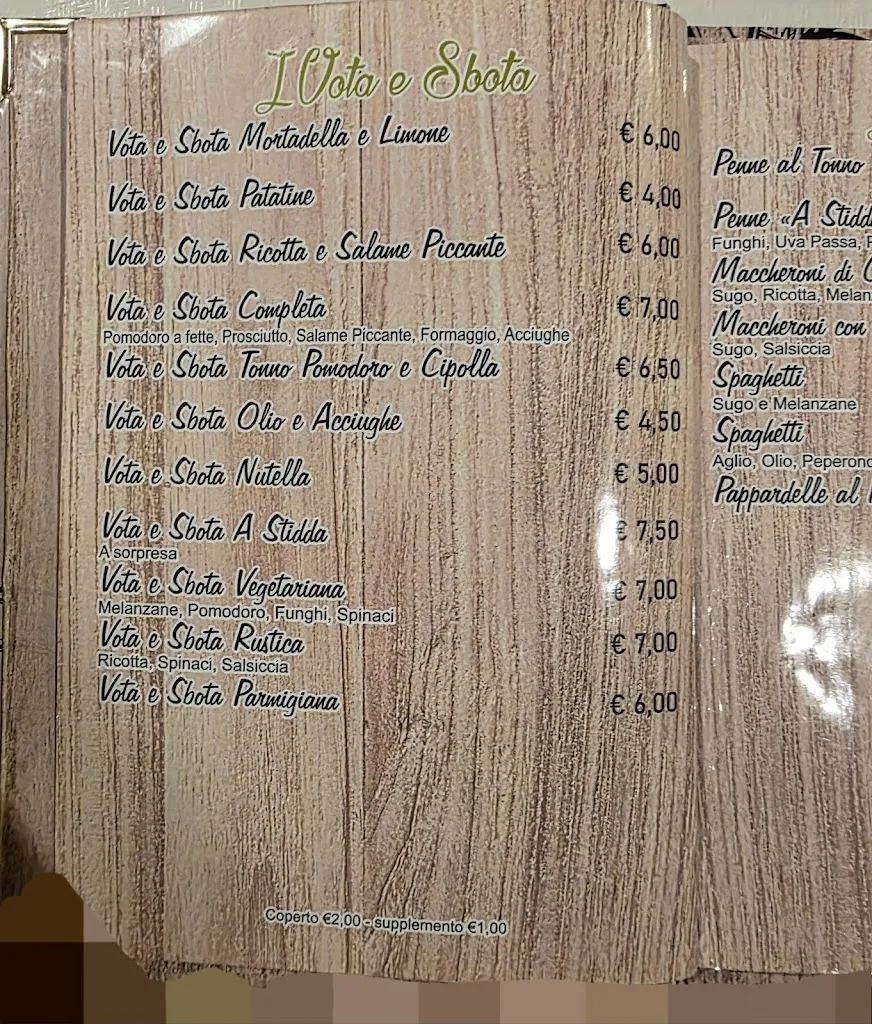 I Vota e Sbota
Vota e Sbota Mortadella e Limone € 6,00
Vota e Sbota Patatine € 4,00
Vota e Sbota Ricotta e Salame Piccante € 6,00
Vota e Sbota Completa € 7,00
Pomodoro a fette, Prosciutto, Salame Piccante, Formaggio, Acciughe
Vota e Sbota Tonno Pomodoro e Cipolla € 6,50
Vota e Sbota Olio e Acciughe € 4,50
Vota e Sbota Nutella € 5,00
Vota e Sbota A Stidda € 7,50
A sorpresa
Vota e Sbota Vegetariana € 7,00
Melanzane, Pomodoro, Funghi, Spinaci
Vota e Sbota Rustica € 7,00
Ricotta, Spinaci, Salsiccia
Vota e Sbota Parmigiana € 6,00
Coperto €2,00 - supplemento €1,00
Penne al Tonno
Penne «A
Funghi, Uva Passa,
Maccheroni di
Sugo, Ricotta,
Maccheroni con
Sugo, Salsiccia
Spaghetti
Sugo e Melanzane
Spaghetti
Aglio, Olio,
Pappardelle al